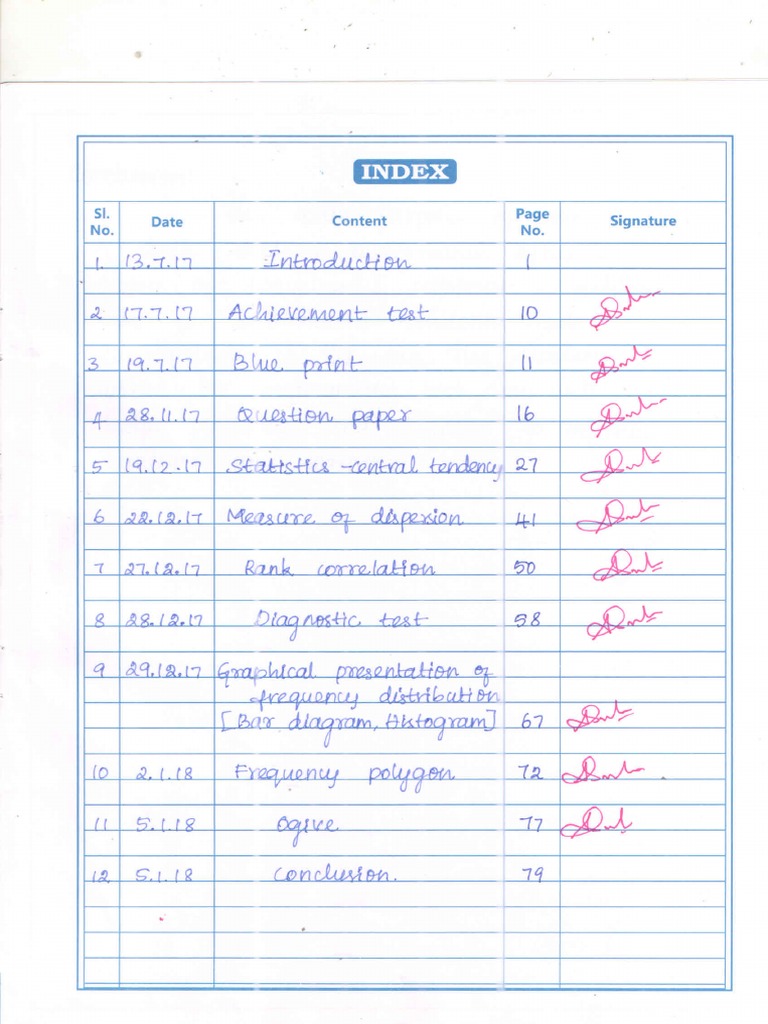 INDEX
Sl. No. Date Content Page No. Signature
1. 13.7.17 Introduction 1
2 17.7.17 Achievement test 10
3 19.7.17 Blue print 11
4 28.11.17 Question paper 16
5 19.12.17 Statistics -central tendency 27
6 22.12.17 Measure of dispersion 41
7 27.12.17 Rank correlation 50
8 28.12.17 Diagnostic test 58
9 29.12.17 Graphical presentation of
frequency distribution
[Bar diagram, Histogram] 67
10 2.1.18 Frequency polygon 72
11 5.1.18 Ogive 77
12 5.1.18 Conclusion. 79